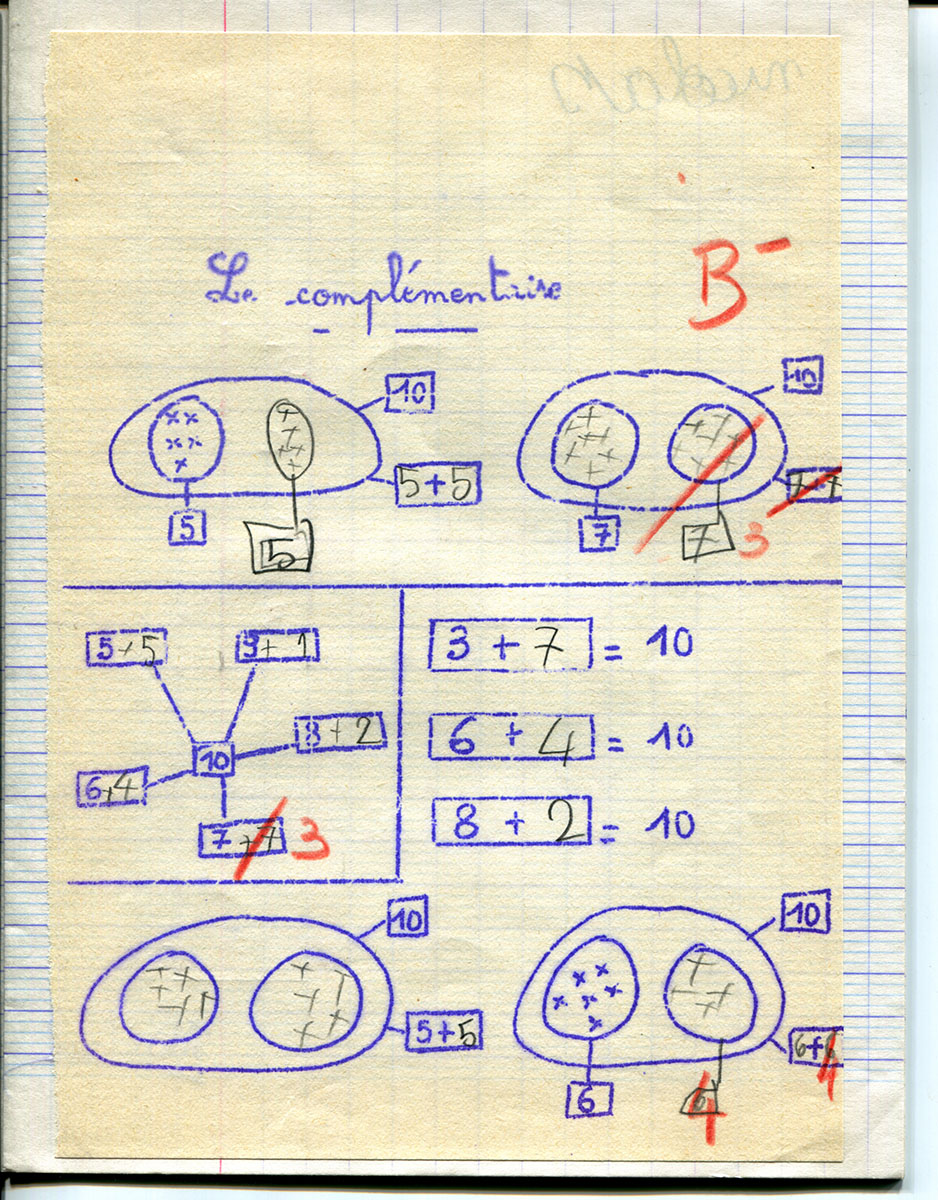 Le complémentaire
B-
10
5+5
5
5
10
7+7
7
7 3
5+5
9+1
8+2
10
6+4
7+7 3
3 + 7 = 10
6 + 4 = 10
8 + 2 = 10
10
5+5
10
6+6 4
6
6 4